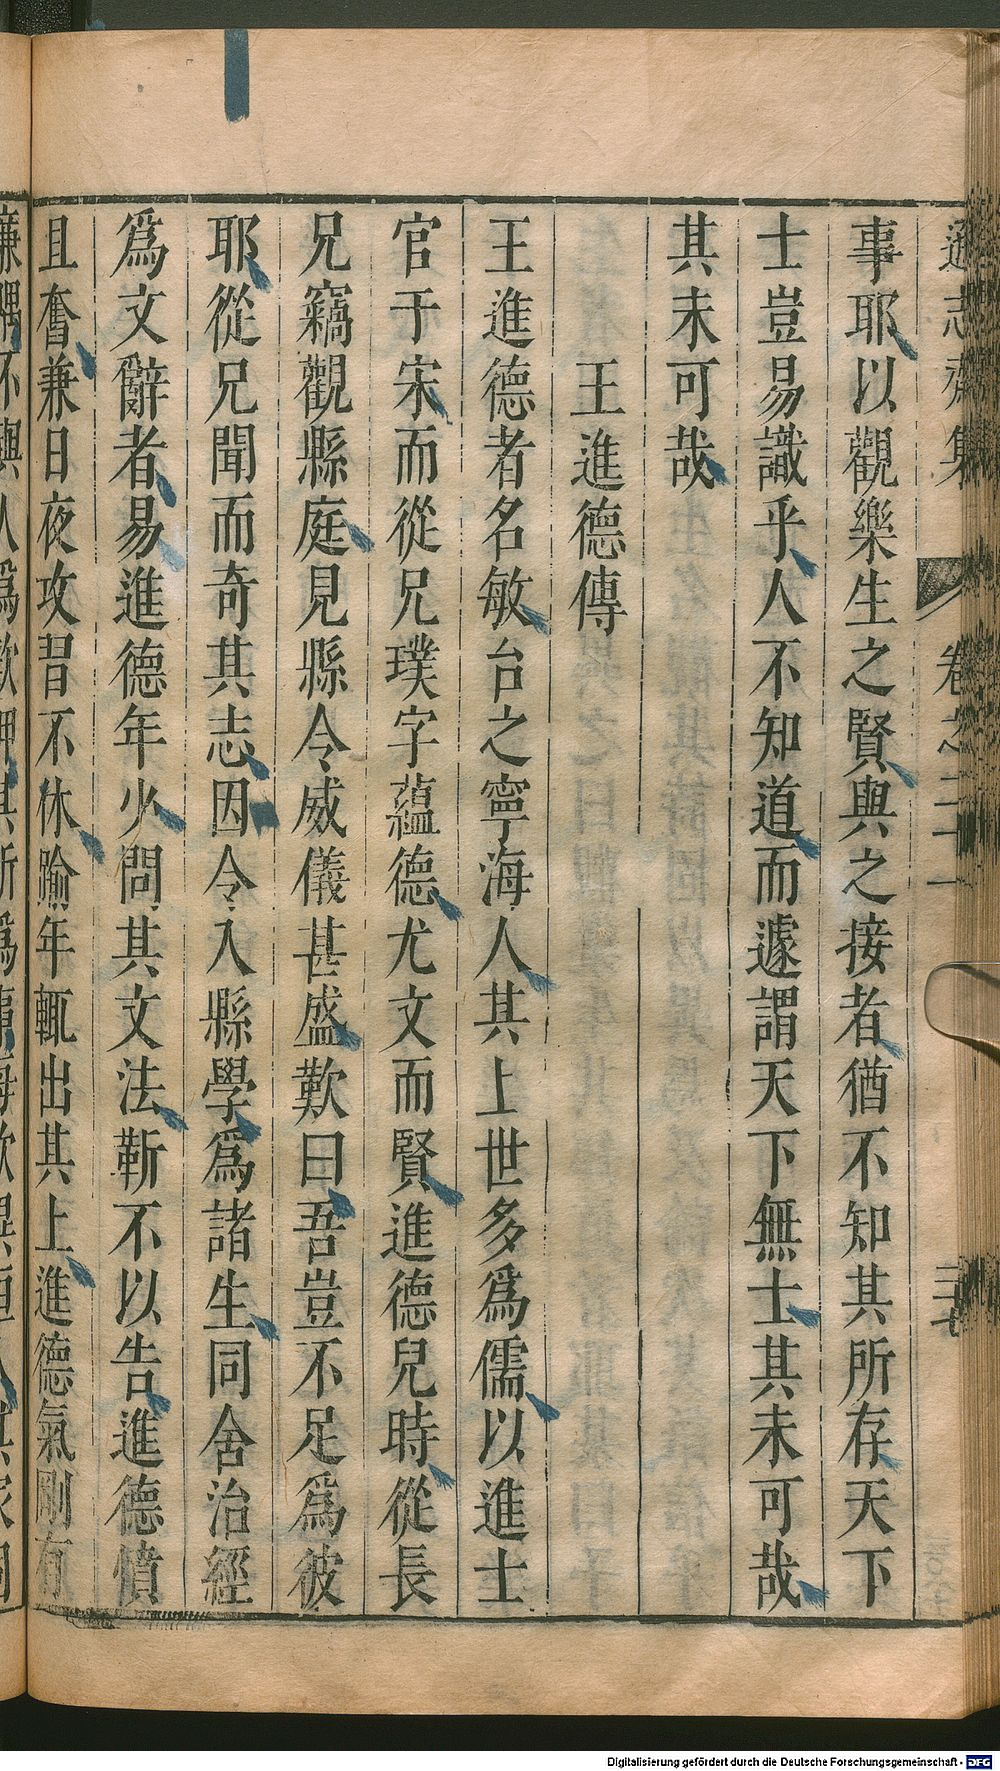 遜志齋集 卷之二十一 三十七
事耶以觀樂生之賢與之接者猶不知其所存天下
士豈易識乎人不知道而遽謂天下無士其未可哉
其未可哉
王進德傳
王進德者名敏台之寧海人其上世多爲儒以進士
官于宋而從兄璞字蘊德尤文而賢進德兒時從長
兄竊觀縣庭見縣令威儀甚盛歎曰吾豈不足爲彼
耶從兄聞而奇其志因令入縣學爲諸生同舍治經
爲文辭者易進德年少問其文法靳不以告進德憤
且奮兼日夜攻習不休踰年輒出其上進德氣剛有
Digitalisierung gefördert durch die Deutsche Forschungsgemeinschaft - DFG